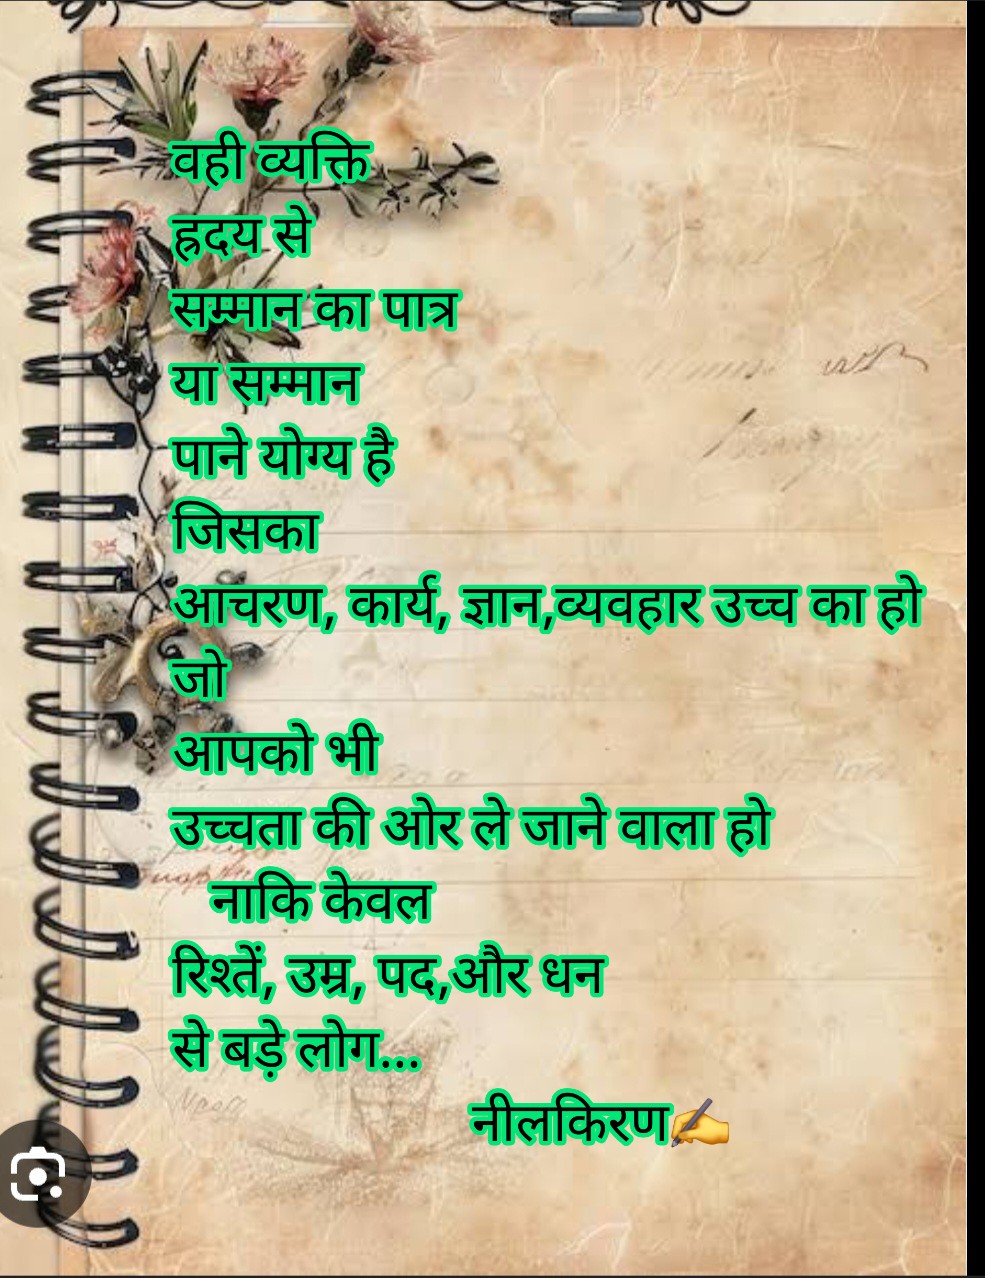 वही व्यक्ति
ह्रदय से
सम्मान का पात्र
या सम्मान
पाने योग्य है
जिसका
आचरण, कार्य, ज्ञान,व्यवहार उच्च का हो
जो
आपको भी
उच्चता की ओर ले जाने वाला हो
नाकि केवल
रिश्तें, उम्र, पद,और धन
से बड़े लोग...
नीलकिरण✍️